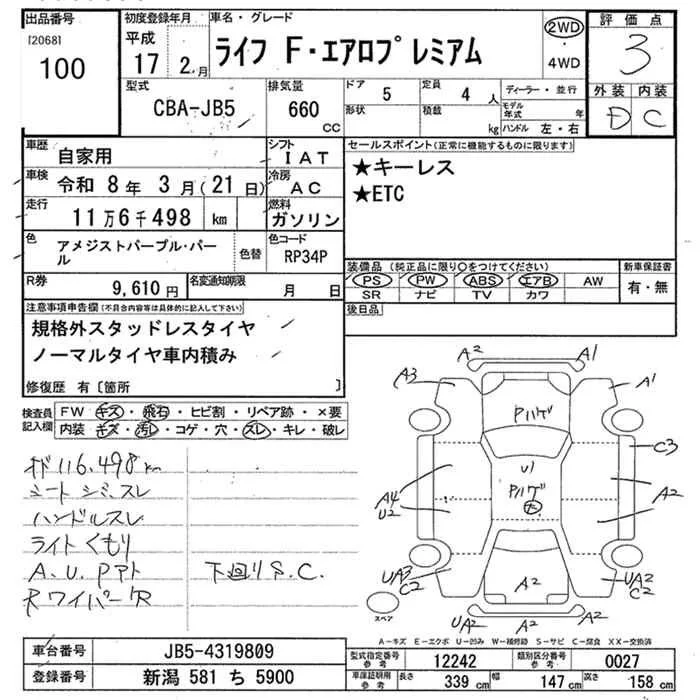 出品番号
[2068]
100
初度登録年月
平成
17 2 月
車名・グレード
ライフ F・エアロプレミアム
2WD
・
4WD
評価点
3
外装 内装
D C
型式
CBA-JB5
排気量
660
CC
ドア
5
形状
定員
4 人
積載
kg
ディーラー・並行
モデル年式 年
ハンドル 左・右
車歴
自家用
シフト
IAT
車検
令和 8 年 3 月 (21 日)
冷房
AC
走行
11 万 6 千 498 km
燃料
ガソリン
色
アメジストパープル・パール
色替
色コード
RP34P
R券
9,610 円
名変通知期限
月 日
セールスポイント(正常に機能するものに限ります)
★キーレス
★ETC
装備品 (純正品に限り○をつけてください)
PS PW ABS エアB AW
SR ナビ TV カワ
新車保証書
有・無
後日品
注意事項申告欄(不具合内容等は具体的に記入して下さい)
規格外スタッドレスタイヤ
ノーマルタイヤ車内積み
修復歴 有〔箇所 〕
検査員記入欄
FW キズ・飛石・ヒビ割・リペア跡・×要
内装 キズ・汚レ・コゲ・穴・スレ・キレ・破レ
116.498 km
シート シミ、スレ
ハンドルスレ
ライトくもり
A.U.Pアト
下回りS.C.
Rワイパー
A2
A1
A3
A1
Pハゲ
C3
U1
Pハゲ
A4
U2
A2
UA3
C2
A2
UA2
C2
UA2
A2
スペア
A-キズ E-エクボ U-凹み W-補修跡 S-サビ C-腐食 XX-交換済
車台番号
JB5-4319809
登録番号
新潟 581 ち 5900
型式指定番号
参考
12242
類別区分番号
参考
0027
車庫証明用
参考
長さ
339 cm
幅
147 cm
高さ
158 cm